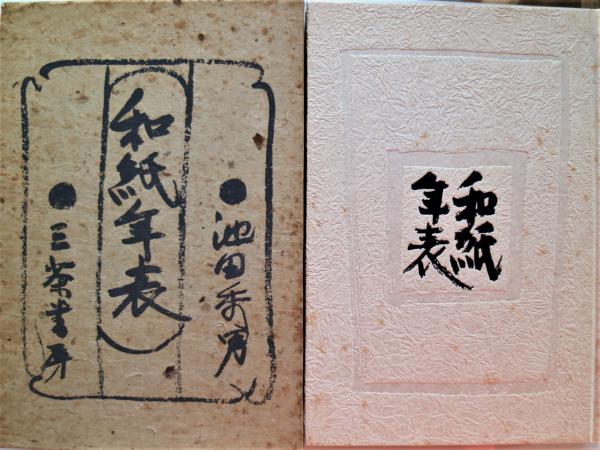 ●池田秀男
和紙年表
●三茶書房
和紙
年表